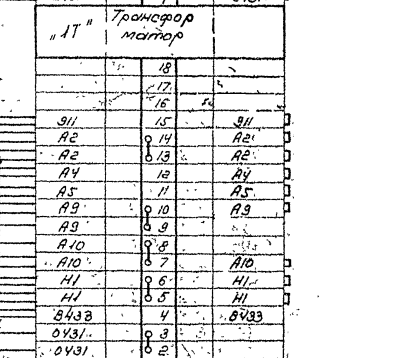 „1Т" Трансфор
матор
18
17
16
911 15 911
А2 14 А2
А2 13 А2
А4 12 А4
А5 11 А5
А9 10 А9
А9 9
А10 8
А10 7 А10
Н1 6 Н1
Н1 5 Н1
8433 4 8433
0431 3
0431 2